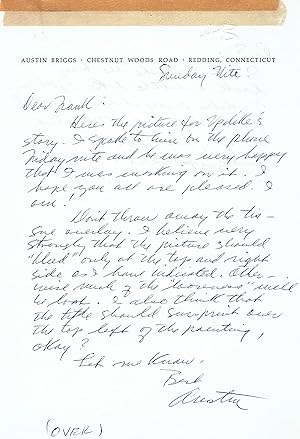 AUSTIN BRIGGS · CHESTNUT WOODS ROAD · REDDING, CONNECTICUT
Sunday Nite.
Dear Frank:
Here's the picture for Updike's
story. I spoke to him on the phone
Friday nite and he was very happy
that I was working on it. I
hope you all are pleased. I
am!
Don't throw away the tis-
sue overlay. I believe very
strongly that the picture should
"bleed" only at the top and right
side as I have indicated. Other-
wise much of the "looseness" will
be lost. I also think that
the title should surprint over
the top left of the painting,
okay?
Let me know.
Best
Austin
(OVER)